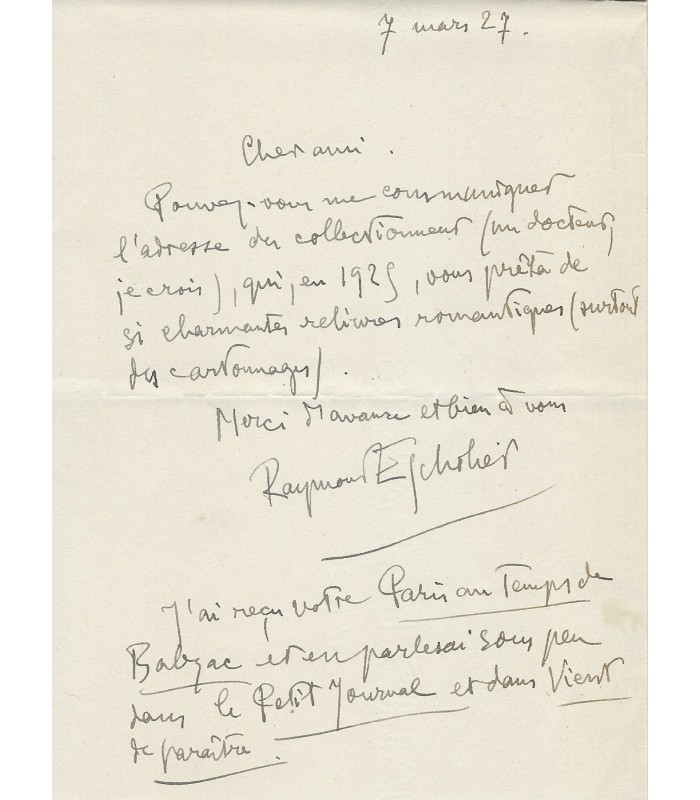 7 mars 27.
Cher ami.
Pouvez-vous me communiquer
l'adresse du collectionneur (un docteur,
je crois), qui, en 1925, vous prêta de
si charmantes reliures romantiques (surtout
des cartonnages).
Merci d'avance et bien à vous
Raymond Escholier
J'ai reçu votre Paris au Temps de
Balzac et en parlerai sous peu
dans le Petit Journal et dans Vient
de paraître.